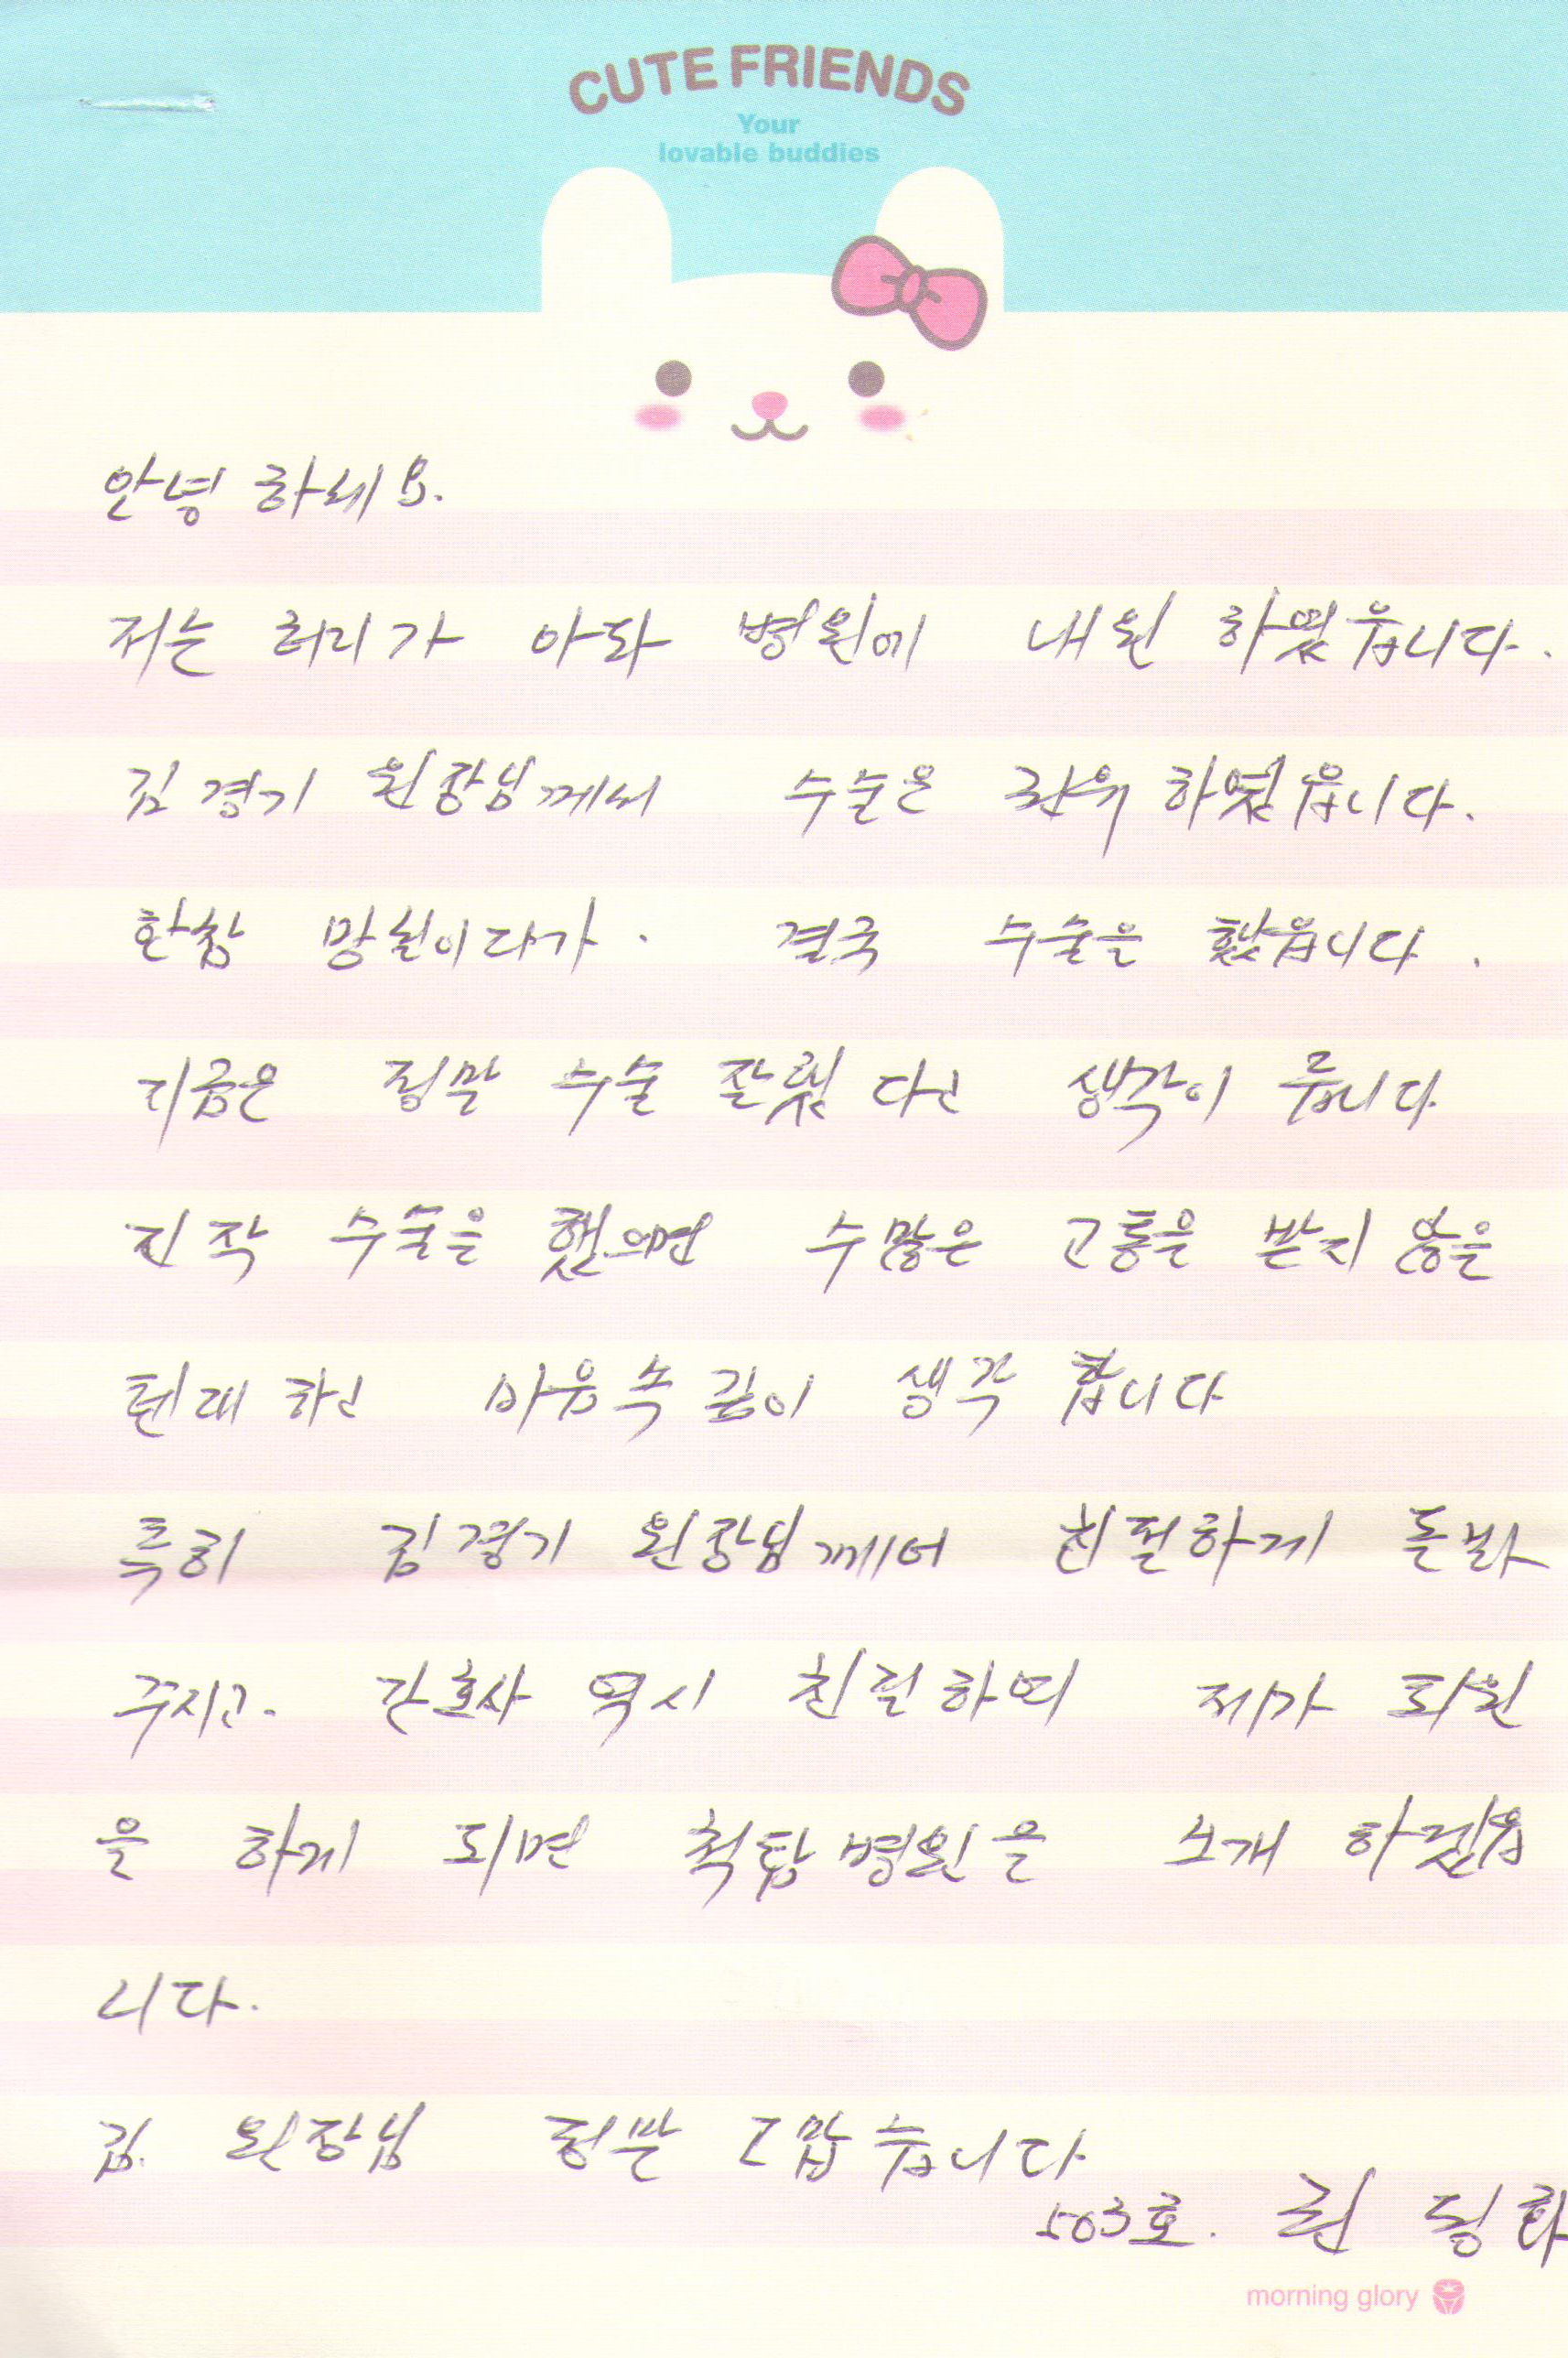 CUTE FRIENDS
Your
lovable buddies
안녕 하세요.
저는 허리가 아파 병원에 내원 하였읍니다.
김경기 원장님께서 수술은 권유 하였읍니다.
한참 망설이다가. 결국 수술을 했읍니다.
지금은 정말 수술 잘했다고 생각이 듭니다
진작 수술을 했으면 수많은 고통을 받지 않을
텐데 하고 마음속 깊이 생각 합니다
특히 김경기 원장님께서 친절하게 돌봐
주시고. 간호사 역시 친절하며 제가 퇴원
을 하게 되면 척탑병원을 소개 하겠읍
니다.
김. 원장님 정말 고맙습니다
503호. 권 정화
morning glory